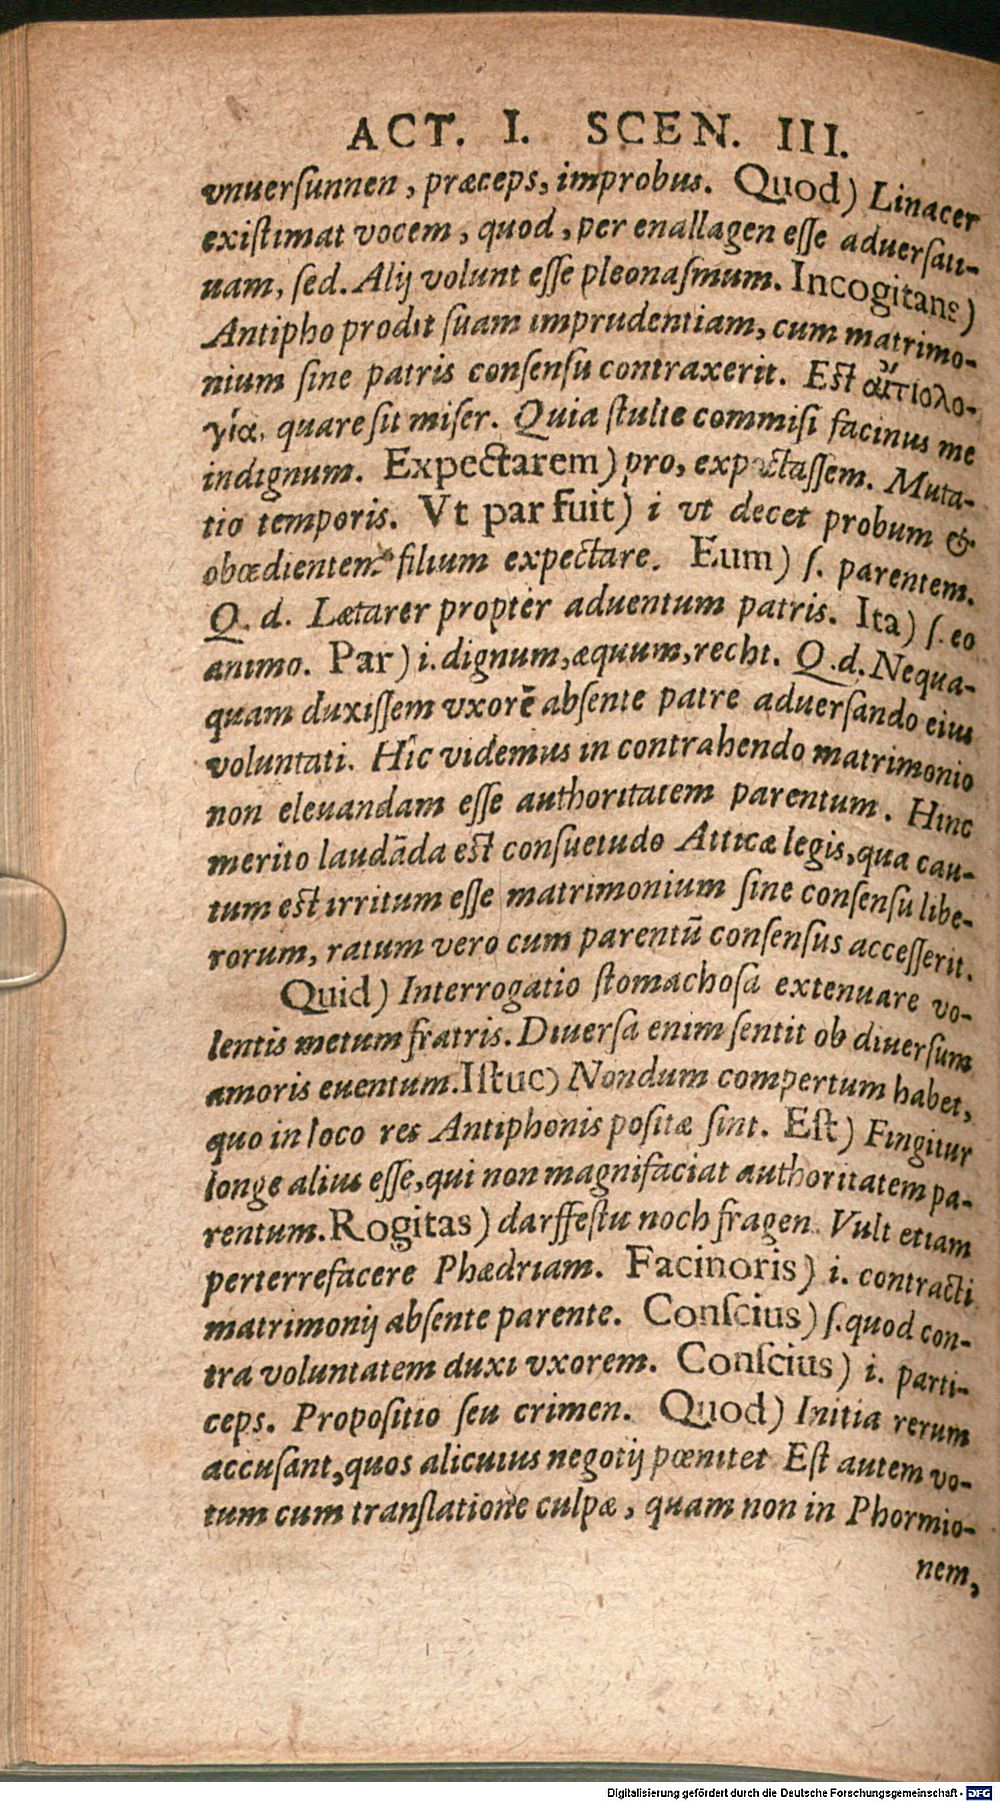 ACT. I. SCEN. III.
vnuersunnen, præceps, improbus. Quod) Linacer
existimat vocem, quod, per enallagen esse aduersati-
uam, sed. Alij volunt esse pleonasmum. Incogitans)
Antipho prodit suam imprudentiam, cum matrimo-
nium sine patris consensu contraxerit. Est αἰτιολο-
γία, quare sit miser. Quia stulte commisi facinus me
indignum. Expectarem) pro, expectassem. Muta-
tio temporis. Vt par fuit) i vt decet probum &
obœdientem filium expectare. Eum) s. parentem.
Q. d. Lætarer propter aduentum patris. Ita) s. eo
animo. Par) i. dignum, æquum, recht. Q. d. Nequa-
quam duxissem vxorē absente patre aduersando eius
voluntati. Hîc videmus in contrahendo matrimonio
non eleuandam esse authoritatem parentum. Hinc
merito laudāda est consuetudo Atticæ legis, qua cau-
tum est irritum esse matrimonium sine consensu libe-
rorum, ratum vero cum parentū consensus accesserit.
Quid) Interrogatio stomachosa extenuare vo-
lentis metum fratris. Diuersa enim sentit ob diuersum
amoris euentum. Istuc) Nondum compertum habet,
quo in loco res Antiphonis positæ sint. Est) Fingitur
longe alius esse, qui non magnifaciat authoritatem pa-
rentum. Rogitas) darffestu noch fragen. Vult etiam
perterrefacere Phædriam. Facinoris) i. contracti
matrimonij absente parente. Conscius) s. quod con-
tra voluntatem duxi vxorem. Conscius) i. parti-
ceps. Propositio seu crimen. Quod) Initia rerum
accusant, quos alicuius negotij pœnitet Est autem vo-
tum cum translatione culpæ, quam non in Phormio-
nem,
Digitalisierung gefördert durch die Deutsche Forschungsgemeinschaft - DFG